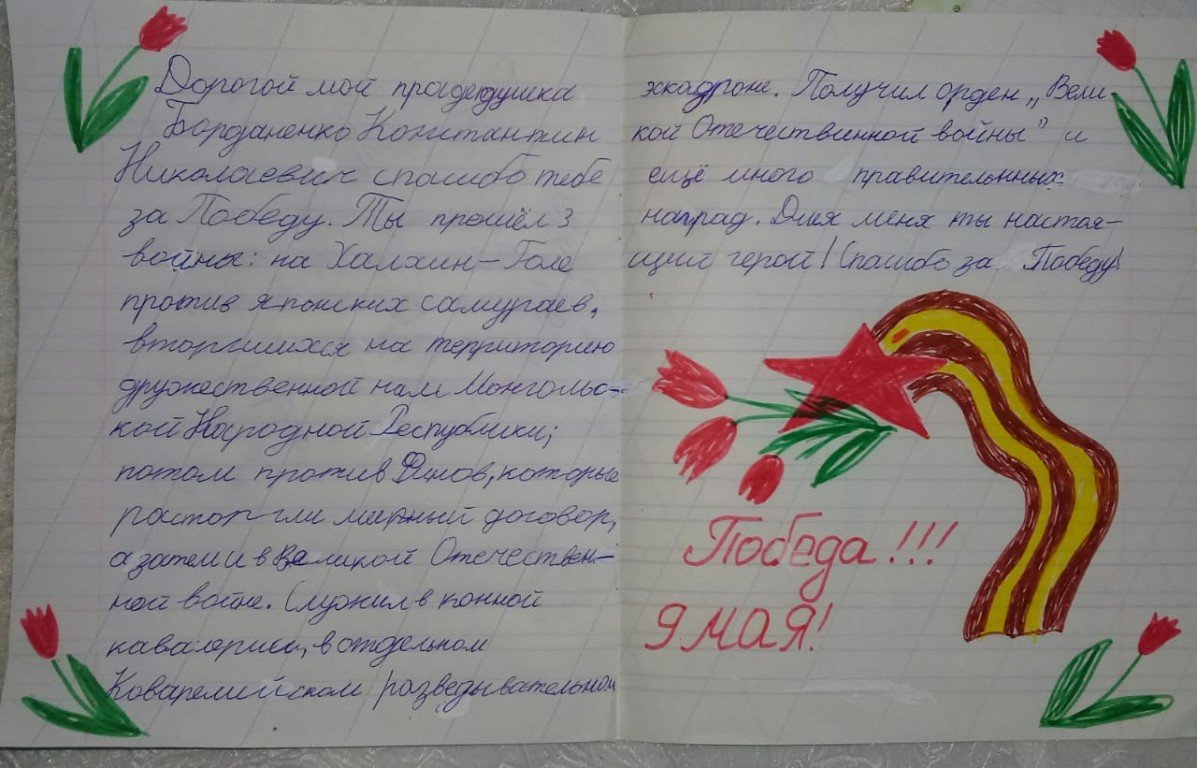 Дорогой мой прадедушка
Борданенко Константин
Николаевич спасибо тебе
за Победу. Ты прошёл 3
войны: на Халхин-Голе
против японских самураев,
вторгшихся на территорию
дружественной нам Монголь-
кой Народной Республики;
потом против Финов, которые
расторгли мирный договор,
а затем и в Великой Отечествен-
ной войне. Служил в конной
кавалерии, в отдельном
Ковалерийском разведывательном
эскадроне. Получил орден „Вели-
кой Отечествинной войны" и
ещё много правительнных
наград. Для меня ты настоя-
щий герой! Спасибо за Победу!
Победа!!!
9 мая!